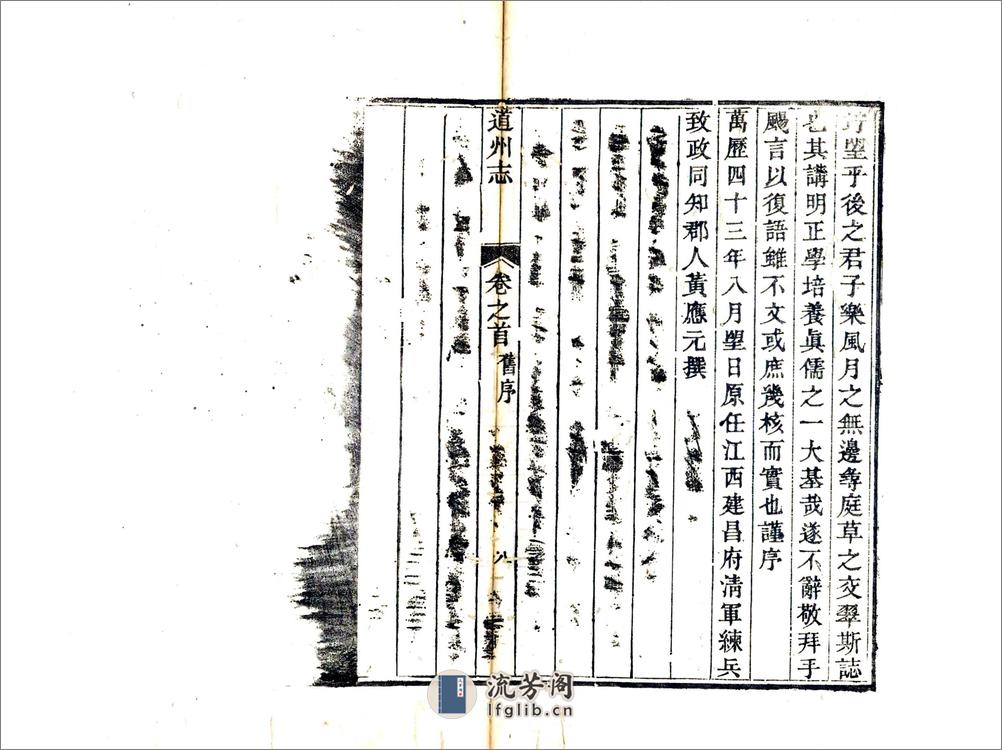 朢乎後之君子樂風月之無邊庭草之交翠斯誌
也其講明正學培養眞儒之一大基哉遂不辭敬拜手
颺言以復語雖不文或庶幾核而實也謹序
萬歷四十三年八月朢日原任江西建昌府清軍練兵
致政同知郡人黃應元撰
道州志 卷之首 舊序
流芳阁
lfglib.cn